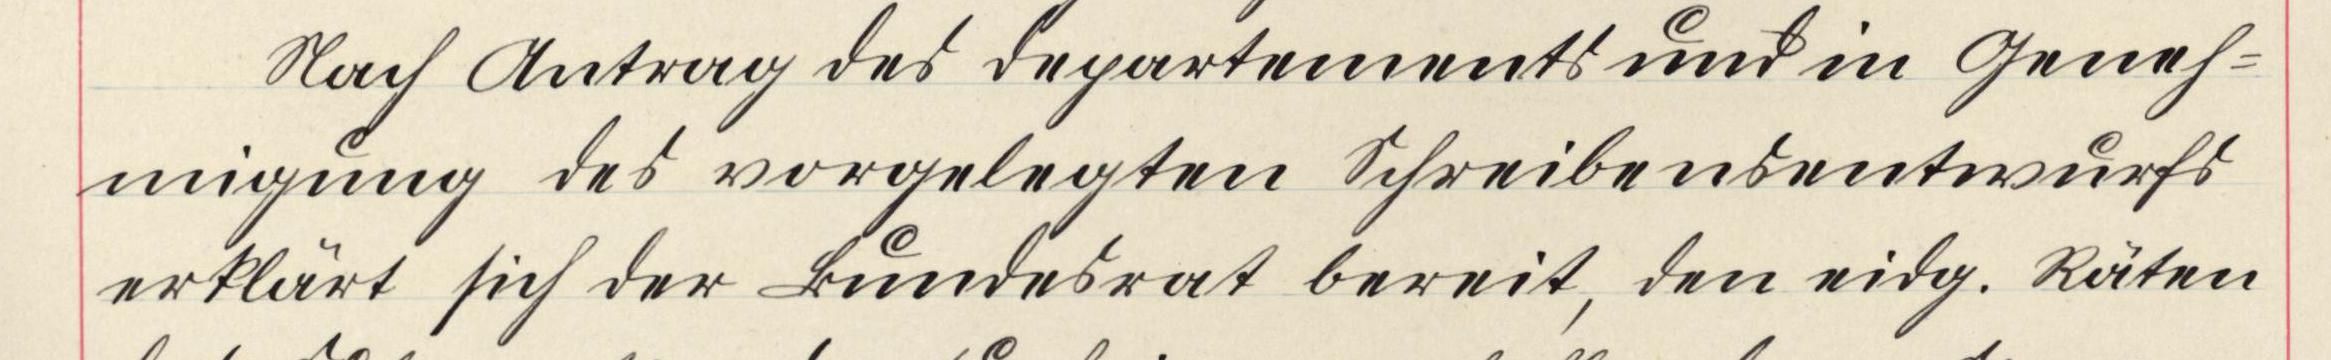 Nach Antrag des Departements und in Geneh=
migung des vorgelegten Schreibensentwurfs
erklärt sich der Bundesrat bereit, den eidg. Räten